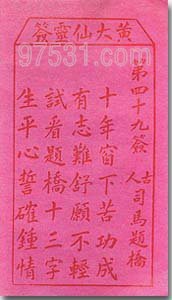 黃大仙靈簽
97531.com
第四十九簽
古人
司馬題橋
十年窗下苦功成
有志難舒願不輕
試看題橋十三字
生平心誓確鍾情